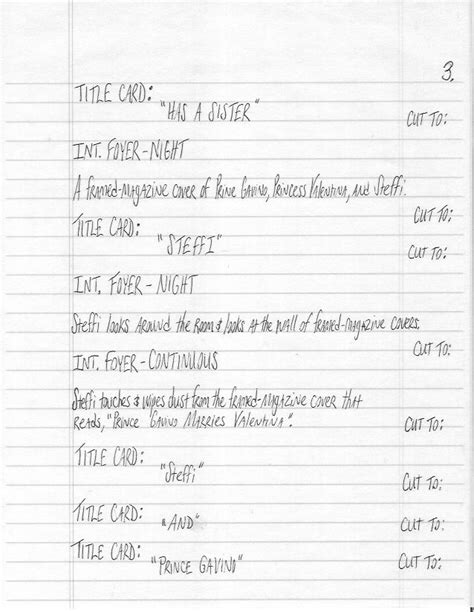 3.
TITLE CARD:
"HAS A SISTER"
CUT TO:
INT. FOYER-NIGHT
A framed-magazine cover of Prine Gavino, Princess Valentina, and Steffi.
CUT TO:
TITLE CARD:
"STEFFI"
CUT TO:
INT. FOYER-NIGHT
Steffi looks around the room & looks at the wall of framed-magazine covers.
CUT TO:
INT. FOYER-CONTINUOUS
Steffi touches & wipes dust from the framed-magazine cover that
reads, "Prince Gavino Marries Valentina".
CUT TO:
TITLE CARD:
"Steffi"
CUT TO:
TITLE CARD:
"AND"
CUT TO:
TITLE CARD:
"PRINCE GAVINO"
CUT TO: